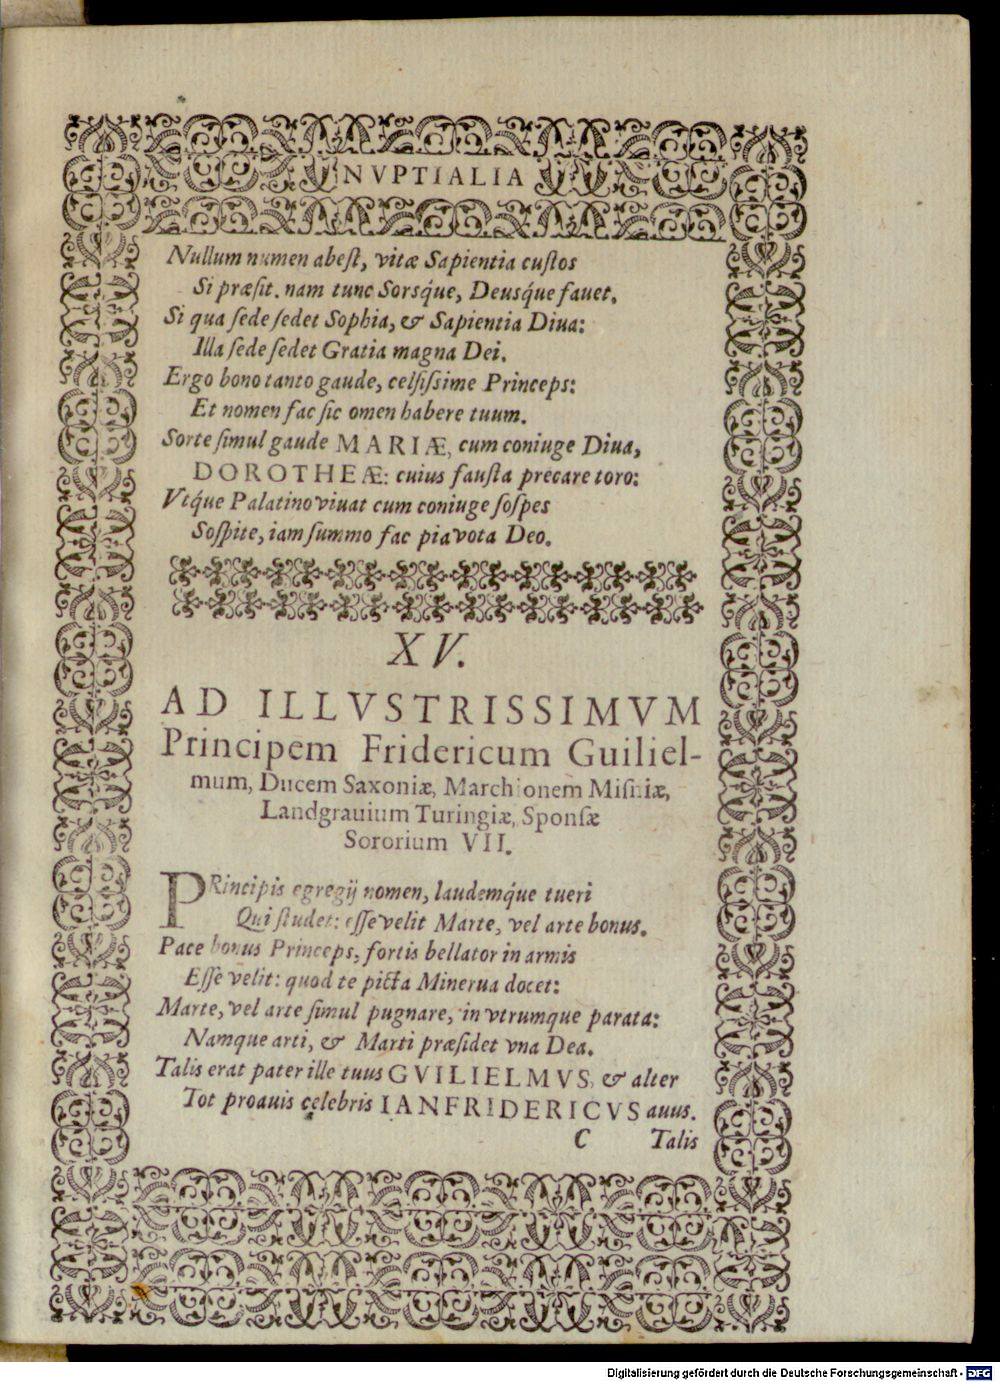 NVPTIALIA
Nullum numen abest, vitæ Sapientia custos
Si præsit. nam tunc Sorsq́ue, Deusq́ue fauet.
Si qua sede sedet Sophia, & Sapientia Diua:
Illa sede sedet Gratia magna Dei.
Ergo bono tanto gaude, celsissime Princeps:
Et nomen fac sic omen habere tuum.
Sorte simul gaude MARIÆ, cum coniuge Diua,
DOROTHEÆ: cuius fausta precare toro:
Vtq́ue Palatino viuat cum coniuge sospes
Sospite, iam summo fac pia vota Deo.
XV.
AD ILLVSTRISSIMVM
Principem Fridericum Guiliel-
mum, Ducem Saxoniæ, Marchionem Misniæ,
Landgrauium Turingiæ, Sponsæ
Sororium VII.
PRincipis egregij nomen, laudemq́ue tueri
Qui studet: esse velit Marte, vel arte bonus.
Pace bonus Princeps, fortis bellator in armis
Esse velit: quod te picta Minerua docet:
Marte, vel arte simul pugnare, in vtrumque parata:
Namque arti, & Marti præsidet vna Dea.
Talis erat pater ille tuus GVILIELMVS, & alter
Tot proauis celebris IANFRIDERICVS auus.
C Talis
Digitalisierung gefördert durch die Deutsche Forschungsgemeinschaft - DFG